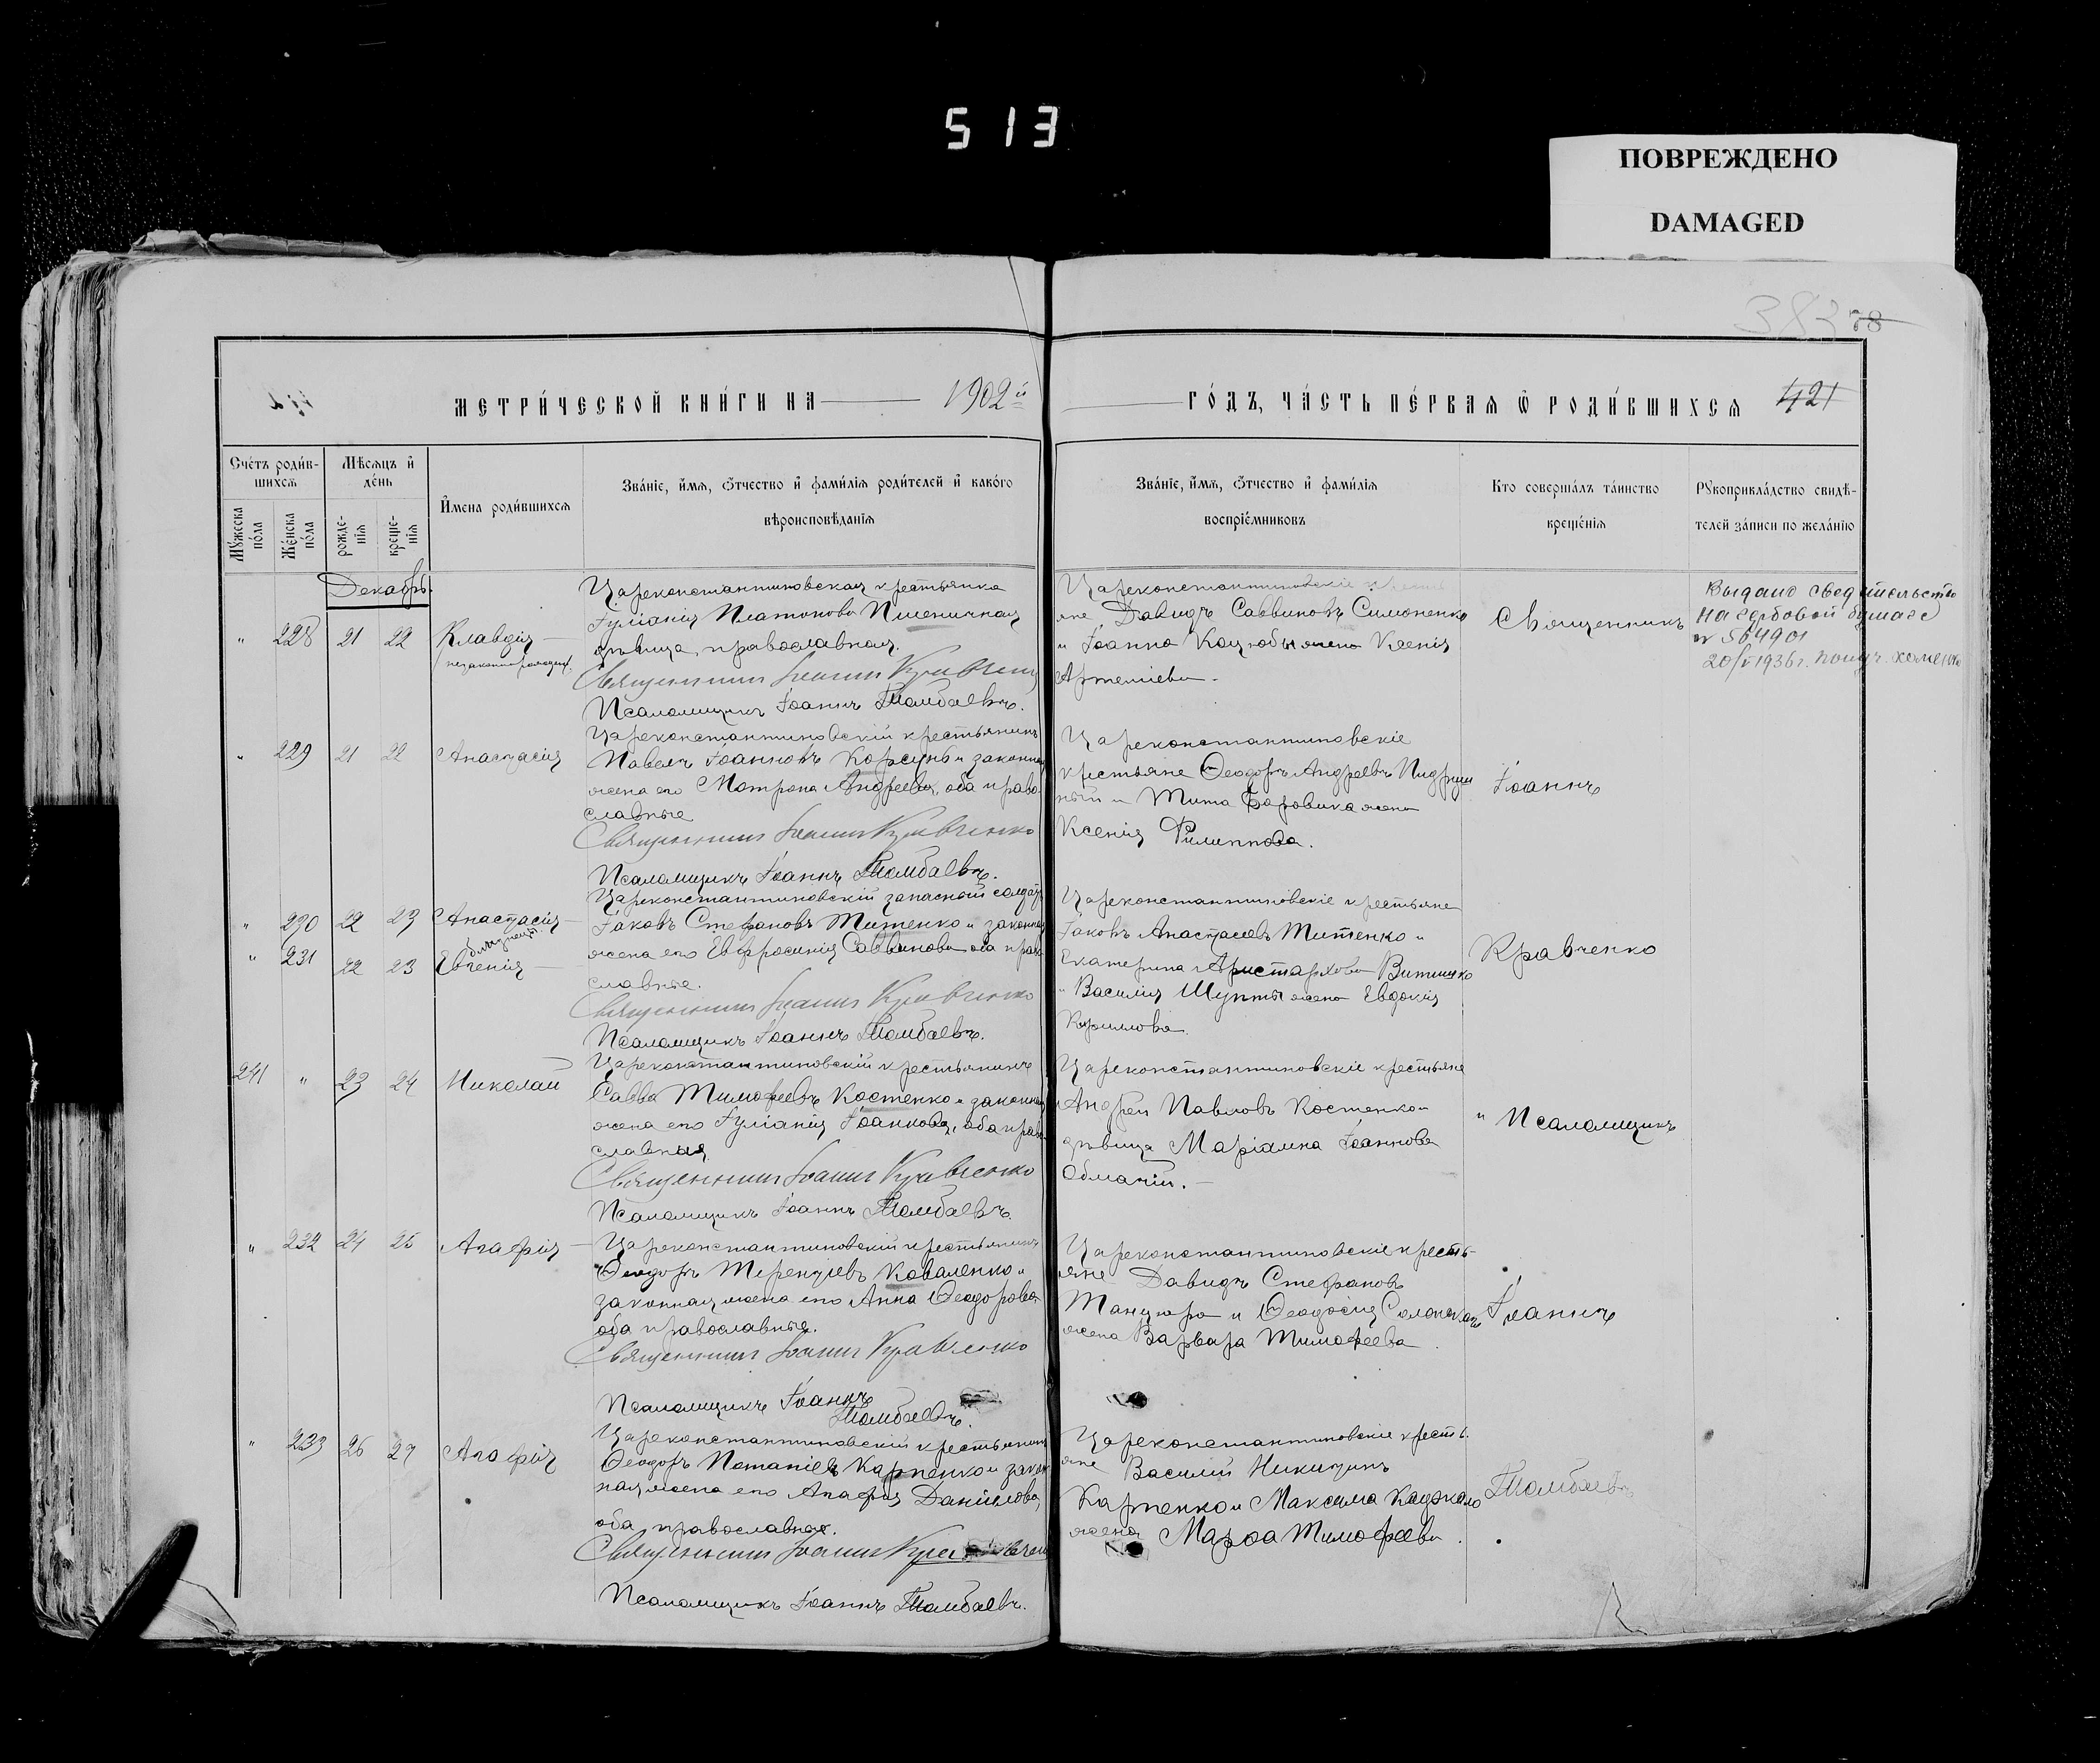 513
ПОВРЕЖДЕНО
DAMAGED
383 78
МЕТРИ́ЧЕСКОЙ КНИ́ГИ НА 1902й
ГО́ДЪ, ЧА́СТЬ ПЕ́РВАѦ Ѿ РОДИ́ВШИХСѦ 421
Сче́тъ роди́в-
шихсѧ
Мꙋ́жеска по́ла
Же́нска по́ла
Мѣ́сѧцъ и де́нь
рожде-
нїѧ
креще-
нїѧ
И҆мена роди́вшихсѧ
Зва́нїе, и҆́мѧ, ѻ҆́тчество и҆ фами́лїѧ роди́телей и҆ како́гѡ
вѣроисповѣ́данїѧ
Зва́нїе, и҆́мѧ, ѻ҆́тчество и҆ фами́лїѧ
воспрїе́мниковъ
Кто соверша́лъ та́инство
креще́нїѧ
Рꙋкоприкла́дство свидѣ́-
телей за́писи по жела́нїю
Декабрь.
" 228 21 22 Клавдія
незаконнорожден.
Цареконстантиновская крестьянка
Іуліанія Платонова Пшеничная
дѣвица, православная.
Священникъ Іоаннъ Кравченко
Псаломщикъ Іоаннъ Тамбаевъ.
Цареконстантиновскіе крестья
яне Давидъ Саввиновъ Симоненко
и Іоанна Коцюбы жена Ксенія
Артеміева.
Священникъ
Выдано свидѣтельство
на гербовой бумаге
№ 564901
20/V 1936 г.
" 229 21 22 Анастасія
Цареконстантиновскій крестьянинъ
Павелъ Іоанновъ Корсунь и законная
жена его Матрона Андреева, оба право
славные
Священникъ Іоаннъ Кравченко
Псаломщикъ Іоаннъ Тамбаевъ.
Цареконстантиновскіе
крестьяне Ѳеодоръ Андреевъ
и Тита Боровика жена
Ксенія Филиппова.
Іоаннъ
" 230 22 23 Анастасія
близнецы.
" 231 22 23 Евгенія
Цареконстантиновскій запасный солдатъ
Іаковъ Стефановъ Титенко и законная
жена его Евфросинія Саввинова оба право
славные.
Священникъ Іоаннъ Кравченко
Псаломщикъ Іоаннъ Тамбаевъ.
Цареконстантиновскіе крестьяне
Іаковъ Анастасіевъ Титенко и
Екатерина Аристархова
и Василія Шупты жена Евдокія
Кириллова.
Кравченко
241 " 23 24 Николай
Цареконстантиновскій крестьянинъ
Савва Тимофеевъ Костенко и законная
жена его Іуліанія Іоаннова, оба право
славныя
Священникъ Іоаннъ Кравченко
Псаломщикъ Іоаннъ Тамбаевъ.
Цареконстантиновскіе крестьяне
Андрей Павловъ Костенко и
дѣвица Маріамна Іоаннова
" Псаломщикъ
" 232 24 25 Агафія
Цареконстантиновскій крестьянинъ
Ѳеодоръ Терентіевъ Коваленко и
законная жена его Анна Ѳеодорова
оба православные.
Священникъ Іоаннъ Кравченко
Псаломщикъ Іоаннъ
Тамбаевъ.
Цареконстантиновскіе кресть-
яне Давидъ Стефановъ
Танцюра и Ѳеодосія
жена Варвара Тимофеева
Іоаннъ
" 233 26 27 Агафія
Цареконстантиновскій крестьянинъ
Ѳеодоръ Потапіевъ Карпенко и закон
ная жена его Агафія Даніилова,
оба православные.
Священникъ Іоаннъ Кравченко
Псаломщикъ Іоаннъ Тамбаевъ.
Цареконстантиновскіе кресть
яне Василій Никитинъ
Карпенко и Максима
жена Марѳа Тимофеева.
Тамбаевъ